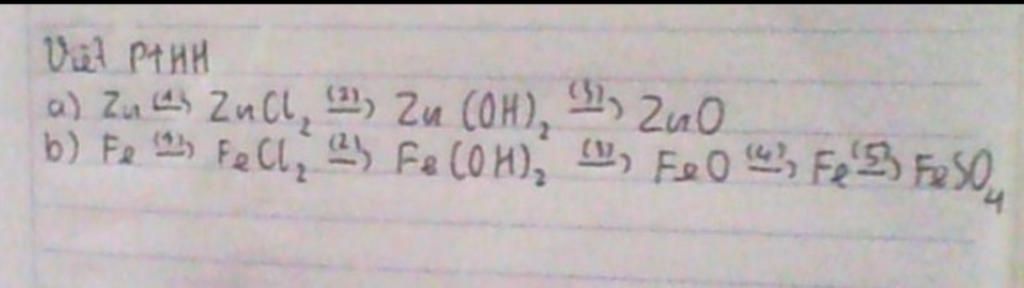 Viết PTHH
a) Zn (1)→ ZnCl₂ (2)→ Zn(OH)₂ (3)→ ZnO
b) Fe (1)→ FeCl₂ (2)→ Fe(OH)₂ (3)→ FeO (4)→ Fe (5)→ FeSO₄